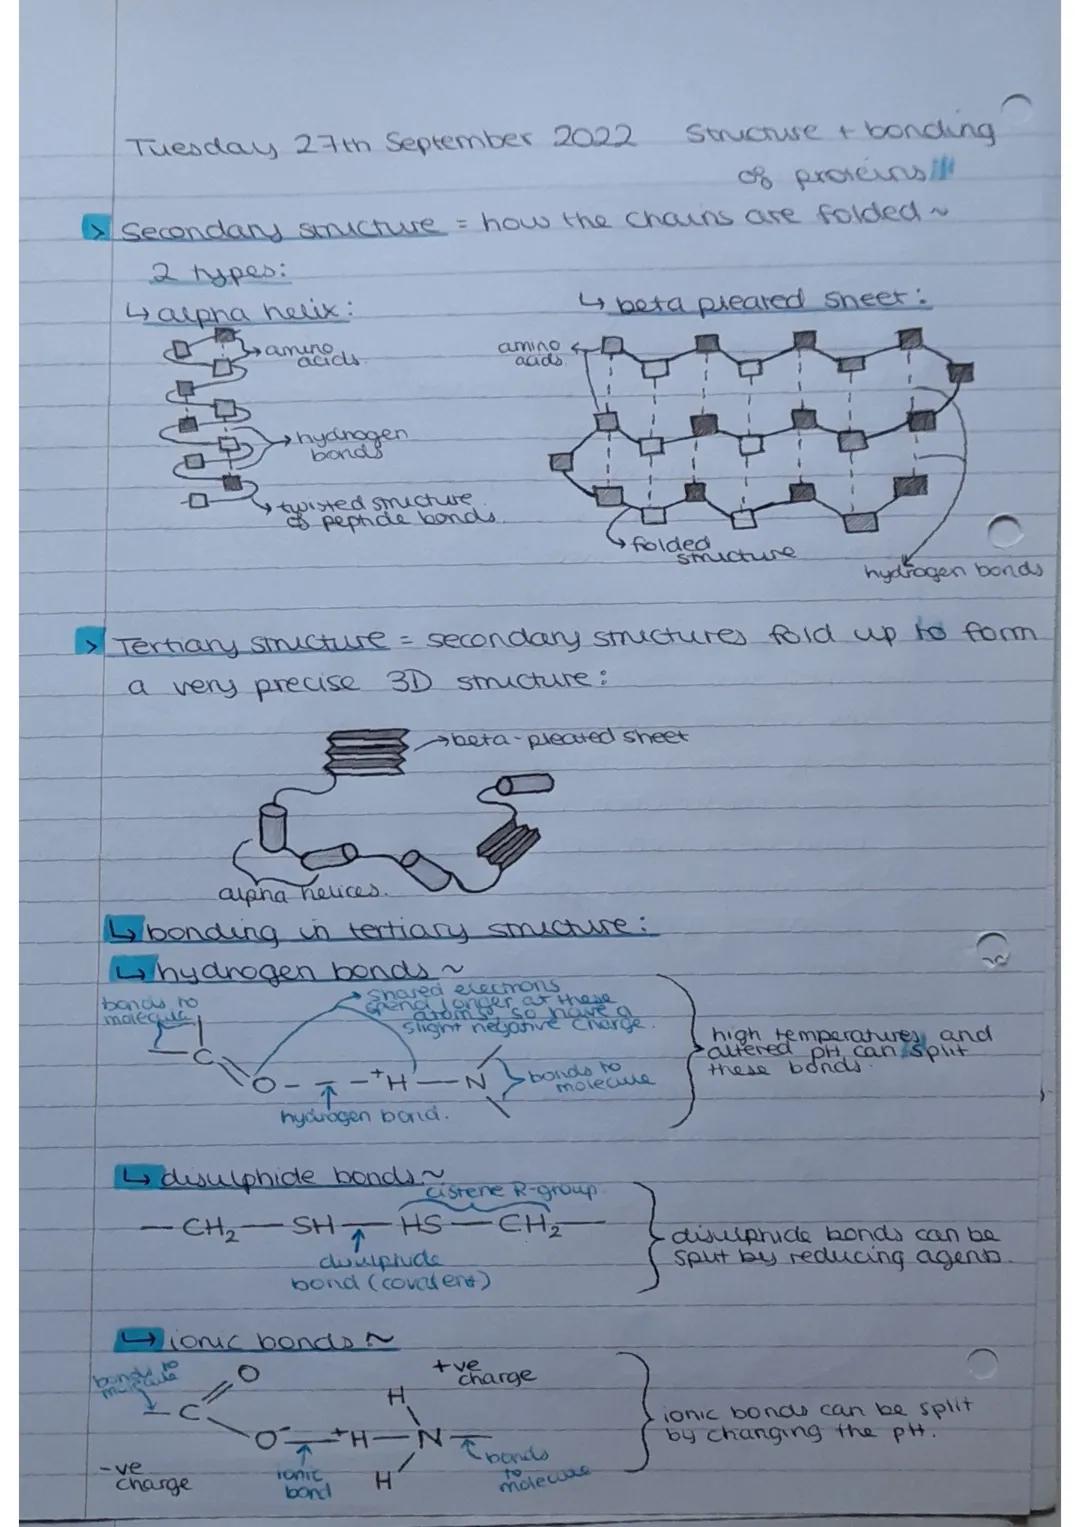 Tuesday 27th September 2022 Structure + bonding
of proteins
> Secondary structure = how the chains are folded ~
2 types:
↳ alpha helix:
↳ beta pleated sheet:
amino
acids
amino
acids
hydrogen
bonds
twisted structure
of peptide bonds
folded
structure
hydrogen bonds
> Tertiary structure = secondary structures fold up to form
a very precise 3D structure:
beta-pleated sheet
alpha helices.
↳ bonding in tertiary structure:
↳ hydrogen bonds ~
bonds to
molecule
shared electrons
spend longer at these
atoms, so have a
slight negative charge.
C
O - - - +H — N
hydrogen bond.
bonds to
molecule
high temperatures and
altered pH can split
these bonds.
↳ disulphide bonds ~
cistene R-group.
— CH₂ — SH — HS — CH₂ —
disulphide
bond (covalent)
disulphide bonds can be
split by reducing agents.
↳ ionic bonds ~
bonds to
molecule
O
+ve
charge
H
C
O⁻ — +H — N —
-ve
charge
ionic
bond
H
bonds
to
molecule
ionic bonds can be split
by changing the pH.